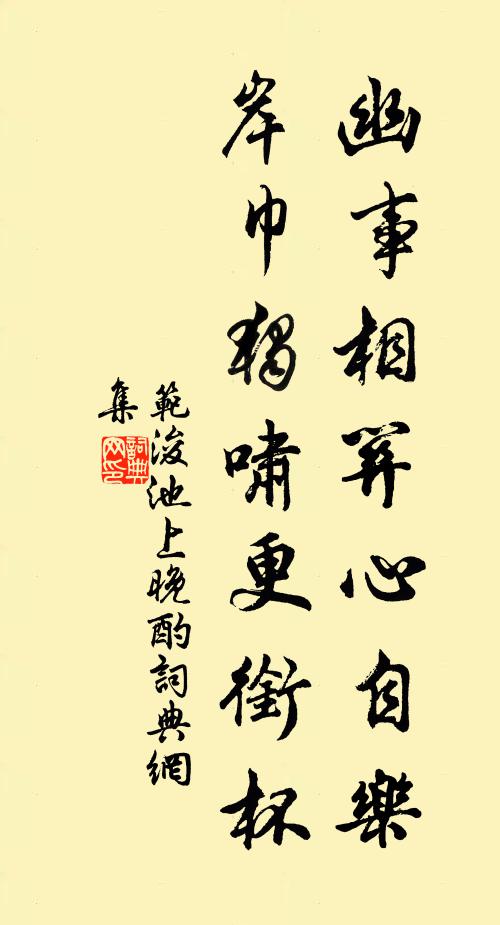 幽事相關心自樂
岸巾獨嘯更銜杯
範浚池上晚酌詞典網
集
詞典网印